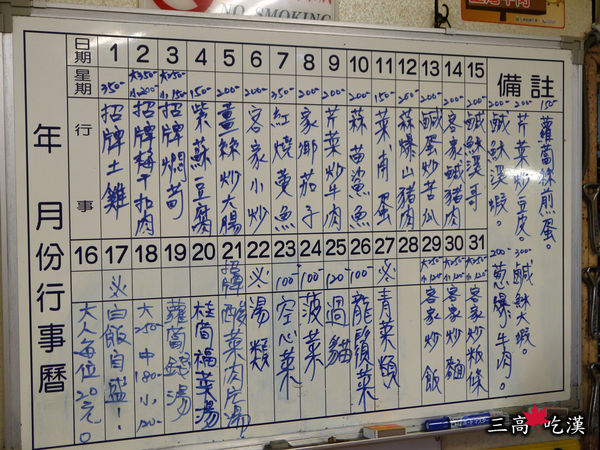 NO SMOKING
年 月份行事曆
日期 1 2 3 4 5 6 7 8 9 10 11 12 13 14 15
星期
行事
350- 招牌土雞
大350- 小200- 招牌梅干扣肉
大250- 小150- 招牌焖苟
150- 紫蘇豆腐
200- 薑絲炒大腸
200- 客家小炒
350- 紅燒賣魚
200- 家鄉茄子
200- 芹菜炒牛肉
200- 蒜苗鯊魚
150- 菜甫蛋
200- 蒜爆山豬肉
200- 鹹蛋炒苦瓜
200- 客家鹹豬肉
200- 鹹酥溪哥
16 17 18 19 20 21 22 23 24 25 26 27 28 29 30 31
大人每位20元。
白飯自盛！
大250- 中180- 小120-
蘿蔔錢湯
桂筍福菜湯
招牌 酸菜肉片湯
湯類
100- 空心菜
100- 菠菜
120- 過貓
100- 龍鬚菜
青菜類
大250- 小120- 客家炒飯
大250- 小120- 客家炒麵
大250- 小120- 客家炒粄條
備註
150- 蘿蔔絲煎蛋。
200- 芹菜炒豆皮。
200- 鹹酥溪蝦。
300- 鹹酥大蝦。
200- 蔥爆牛肉。
三高 吃漢